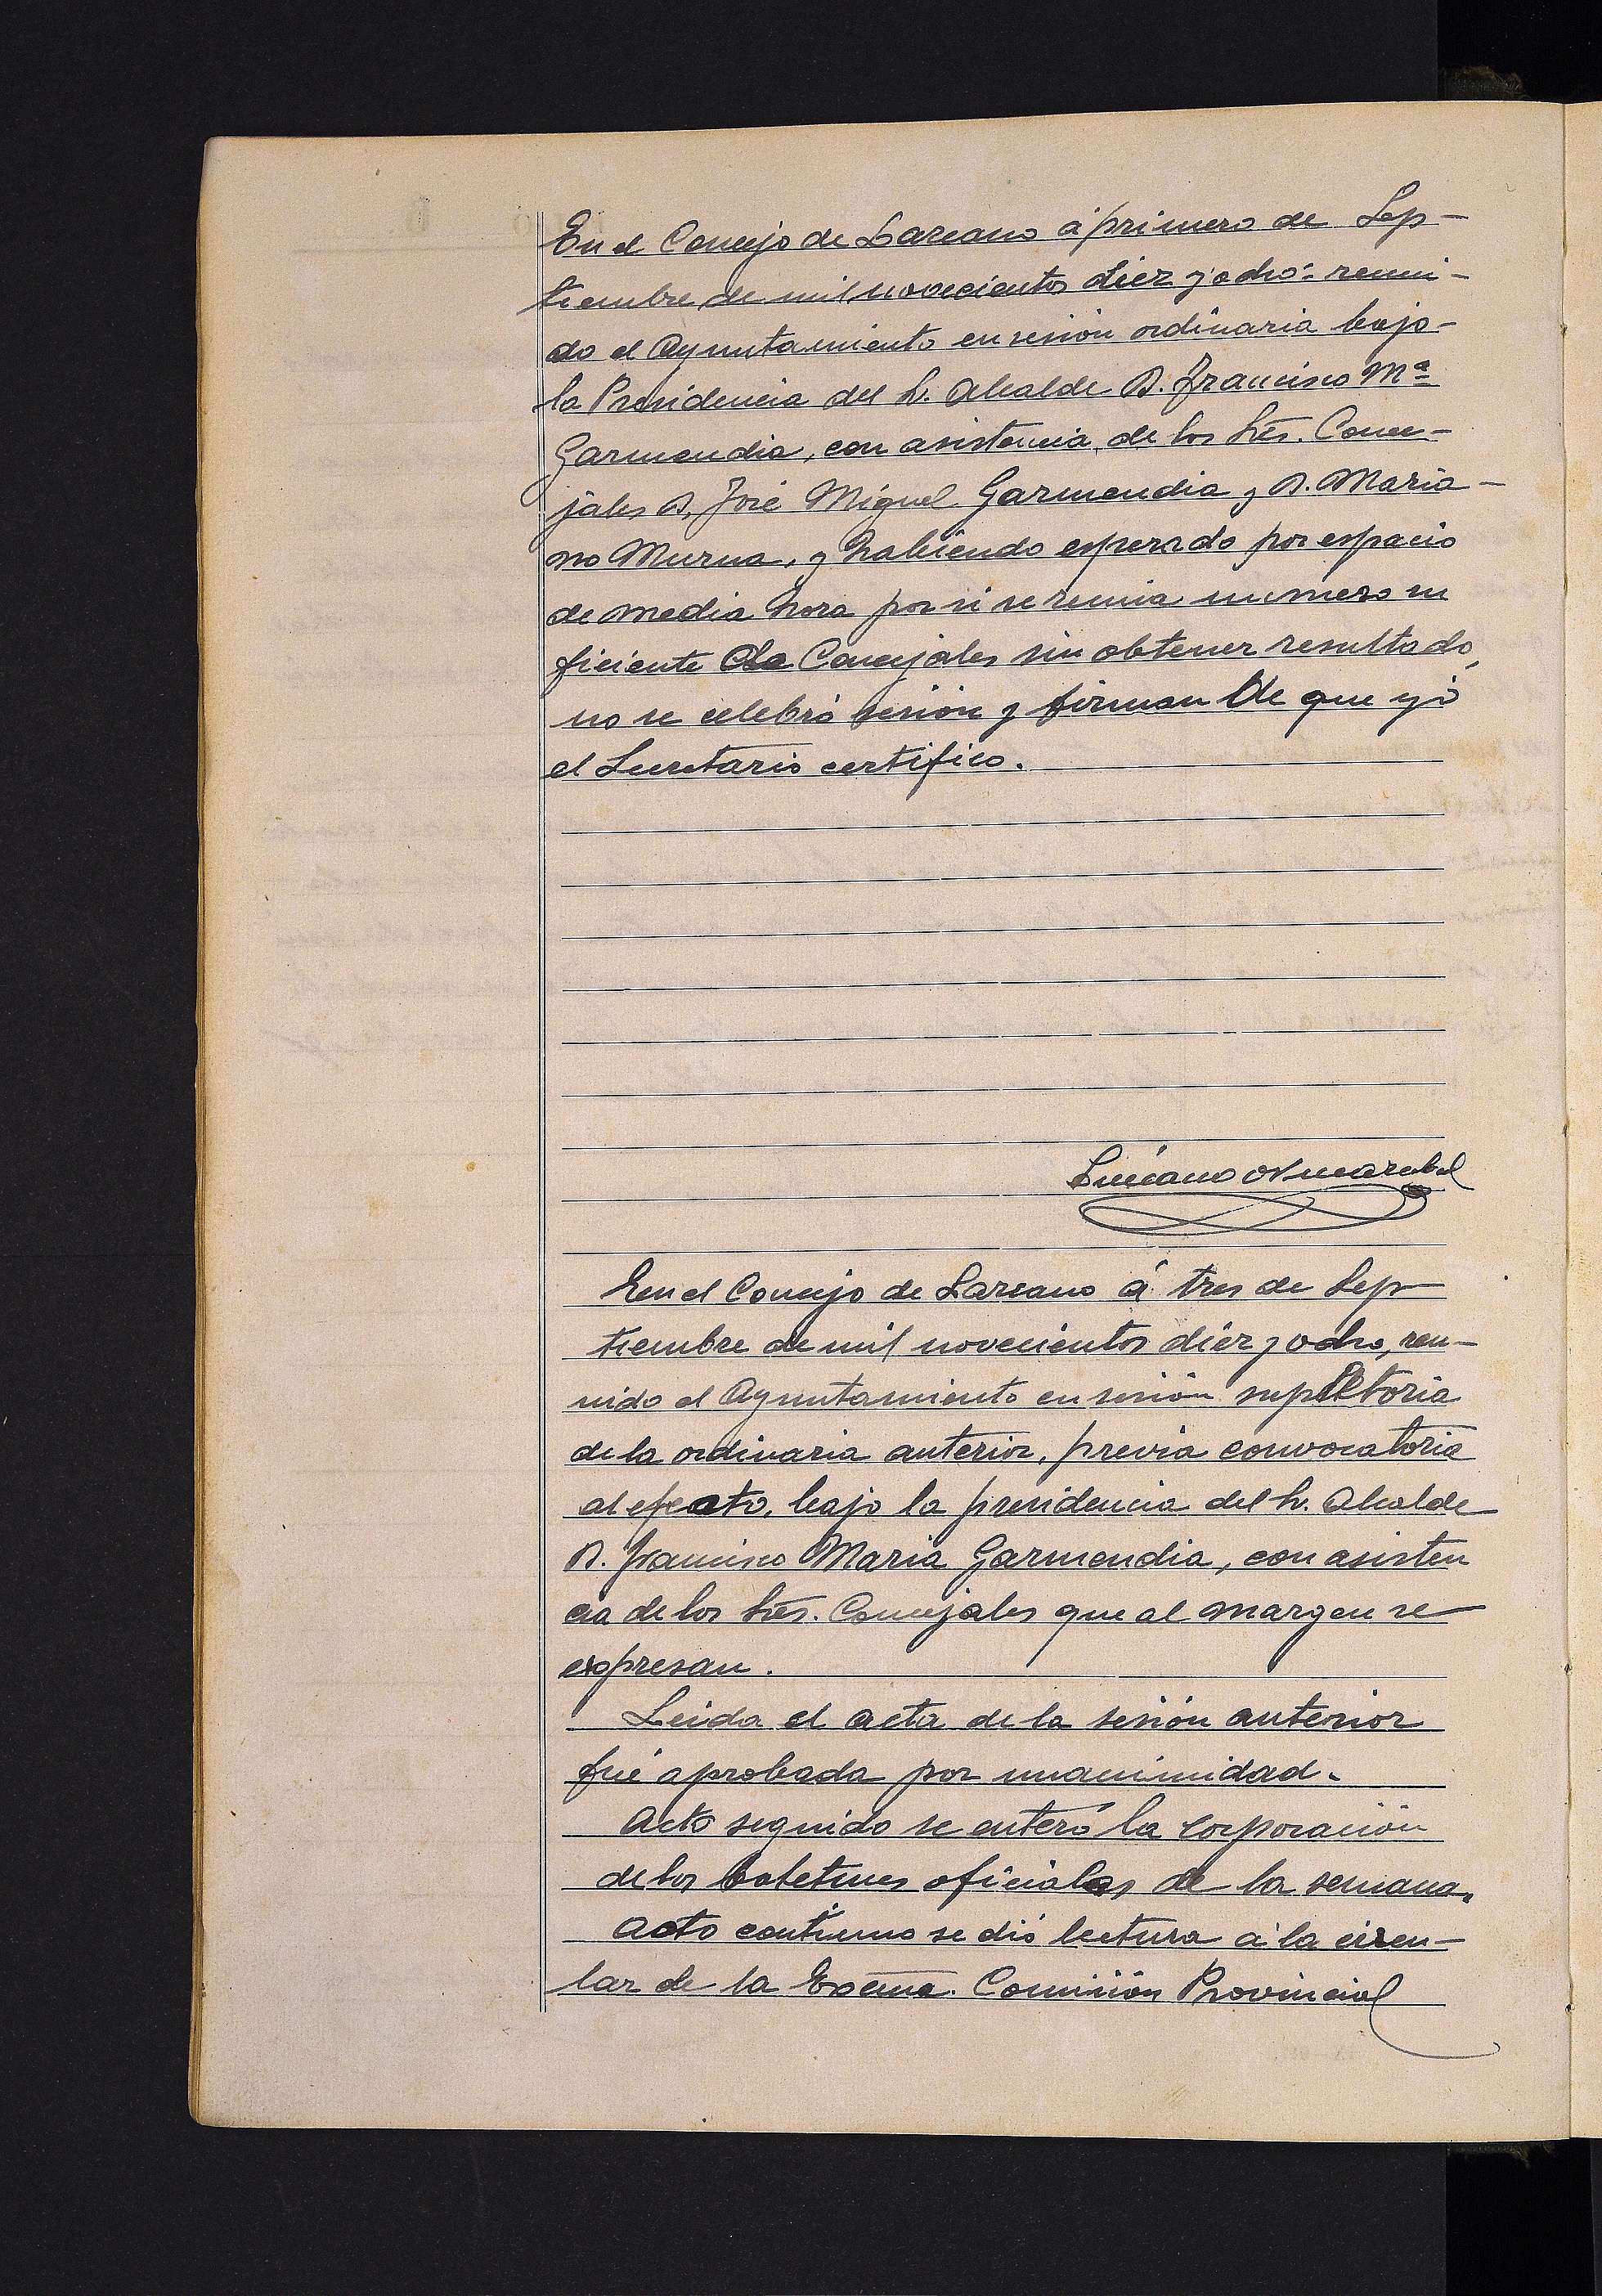 En el Concejo de Larcano á primero de Sep-
tiembre de mil novecientos diez y ocho: reuni-
do el Ayuntamiento en sesión ordinaria bajo-
la Presidencia del S. Alcalde D. Francisco Mª
Garmendia, con asistencia de los Srés. Conce-
jales D. José Miguel Garmendia y D. Maria-
no Murua, y habiendo esperado por espacio
de media hora por si se reunia numero su
ficiente de Concejales sin obtener resultado,
no se celebró sesión y firman de que yó
el Secretario certifico.
Luciano
En el Concejo de Larcano á tres de Sep
tiembre de mil novecientos diez y ocho, reu-
nido el Ayuntamiento en sesión supletoria
de la ordinaria anterior, previa convocatoria
al efecto, bajo la presidencia del S. Alcalde
D. Francisco Maria Garmendia, con asisten
cia de los Srés. Concejales que al margen se
expresan.
Leida el acta de la sesión anterior
fué aprobada por unanimidad.
Acto seguido se enteró la corporación
de los boletines oficiales de la semana.
Acto contínuo se dió lectura á la circu-
lar de la Excma. Comisión Provincial